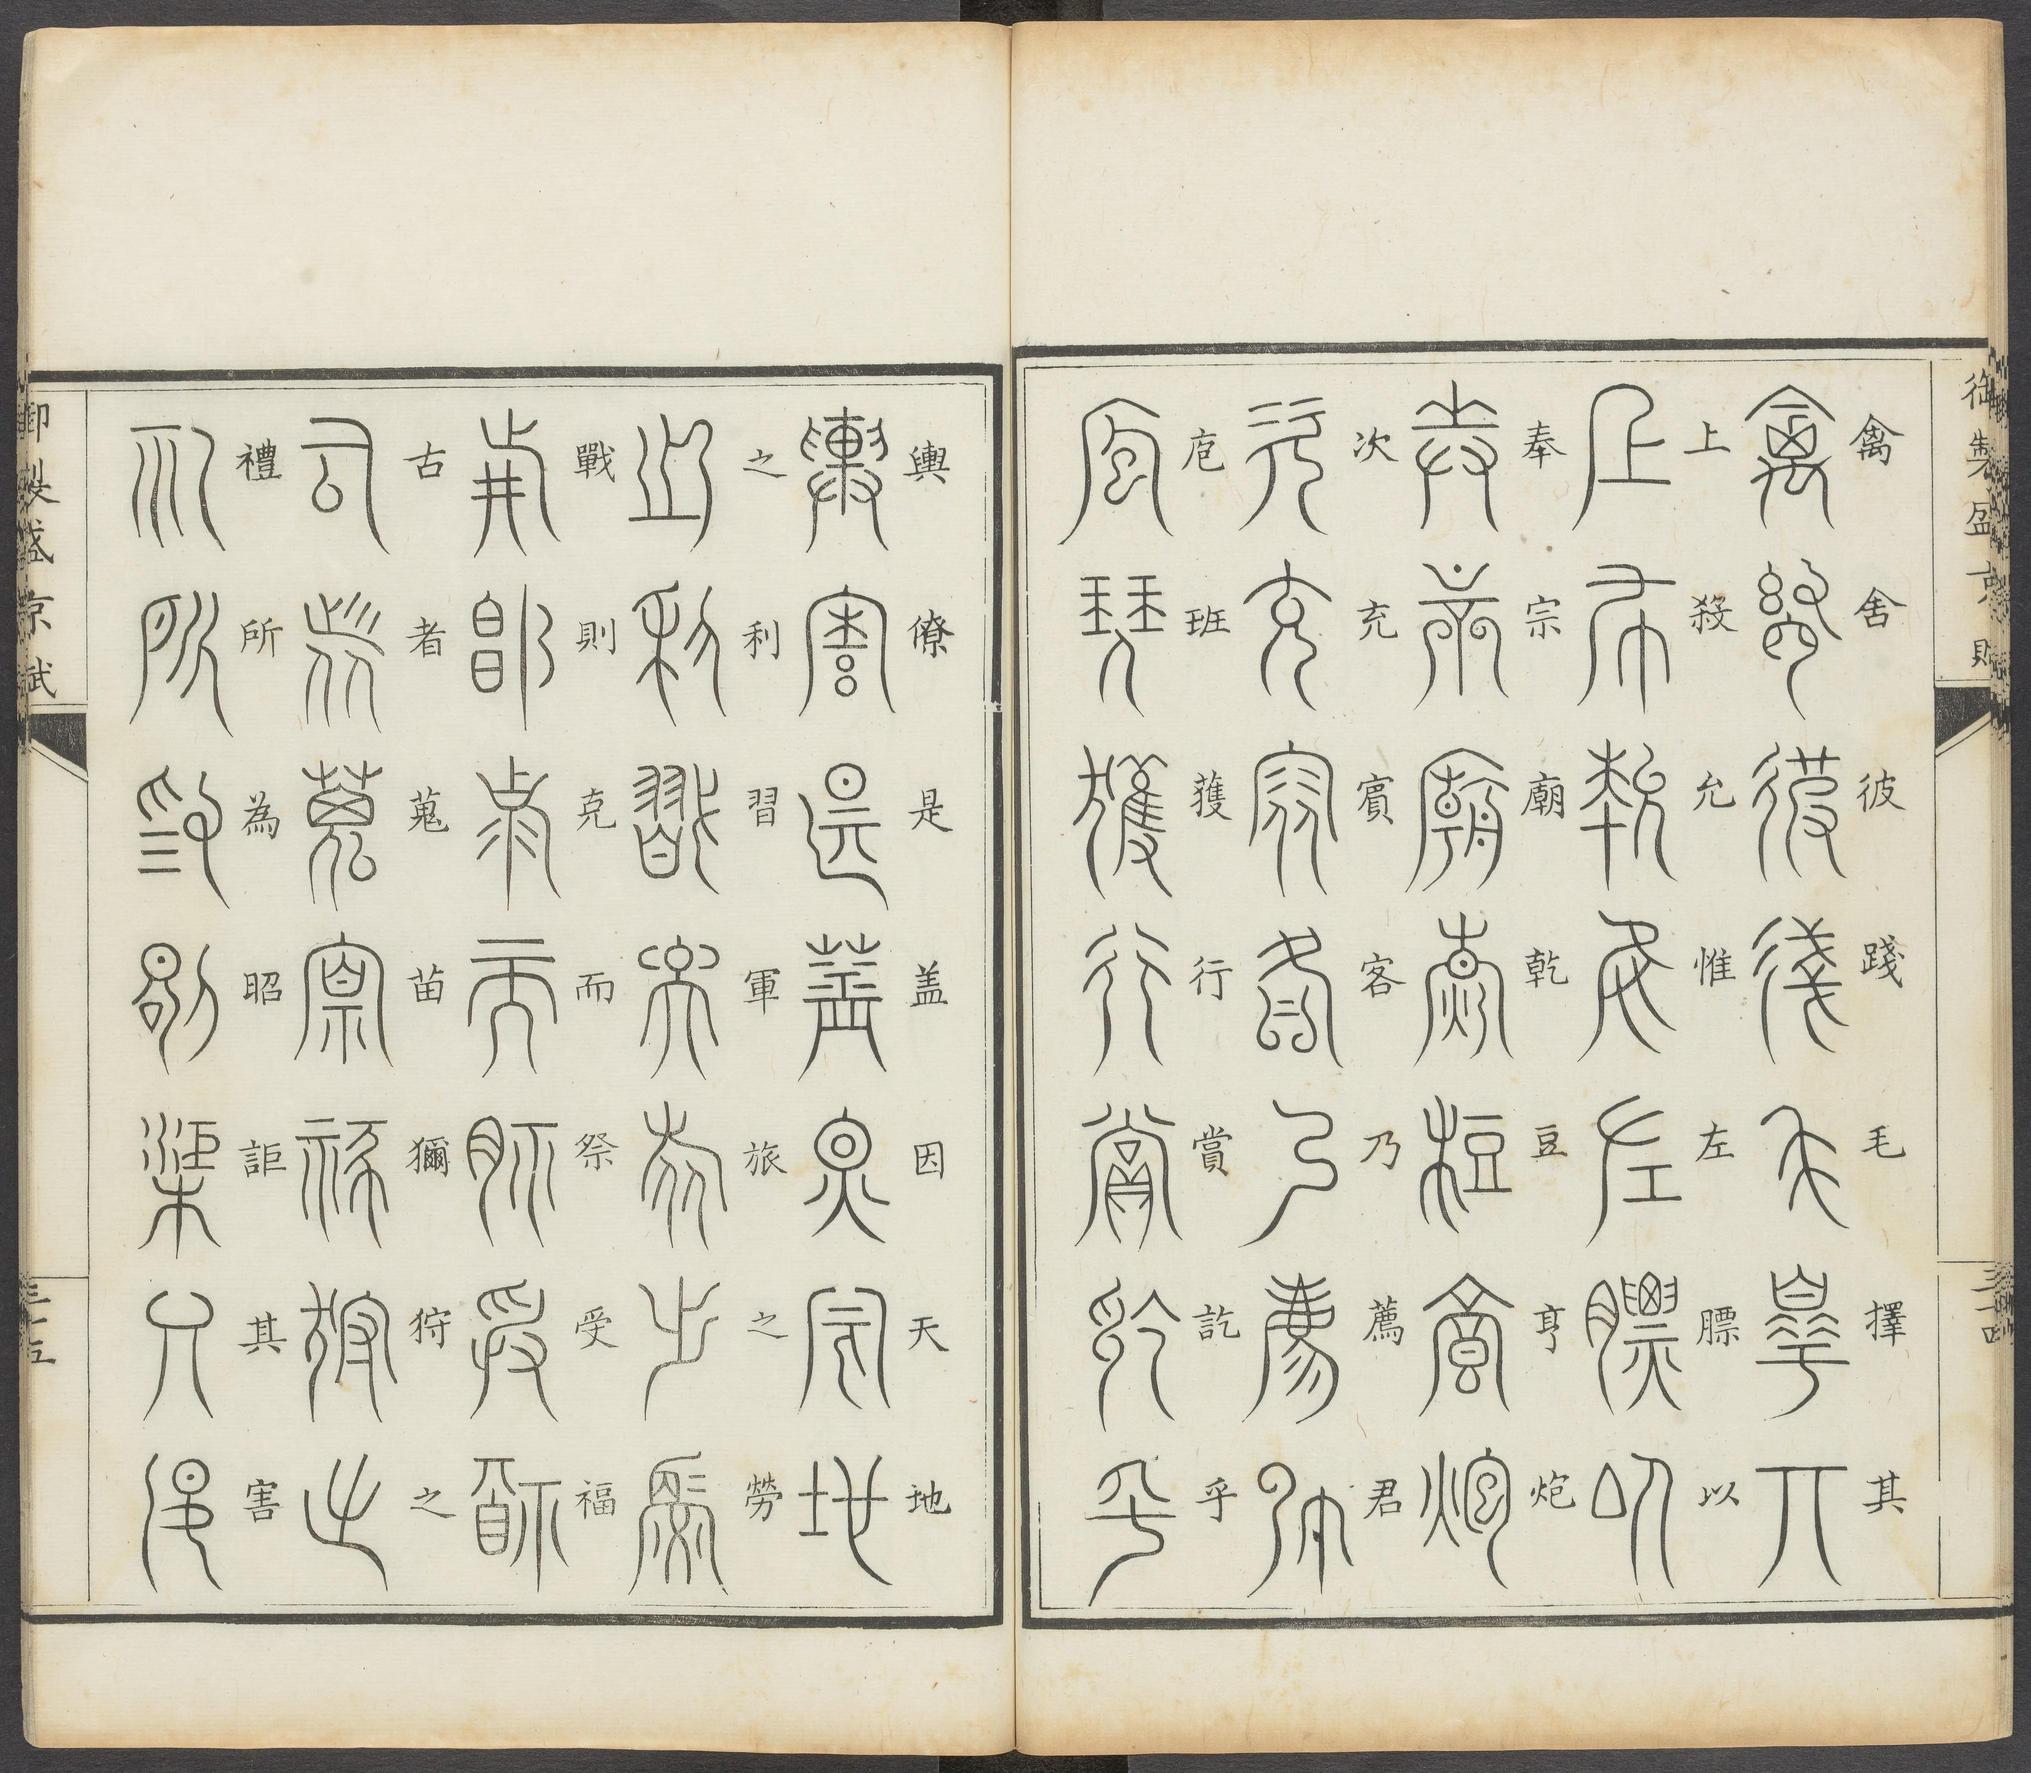 御製盛京賦
禽舍彼踐毛擇其
上殺允惟左膘以
奉宗廟乾豆亨炮
次充賓客乃薦君
庖班獲行賞訖乎
三十四
輿僚是盖因天地
之利習軍旅之勞
戰則克而祭受福
古者蒐苗獮狩之
禮所為昭詎其害
御製盛京賦
三十五